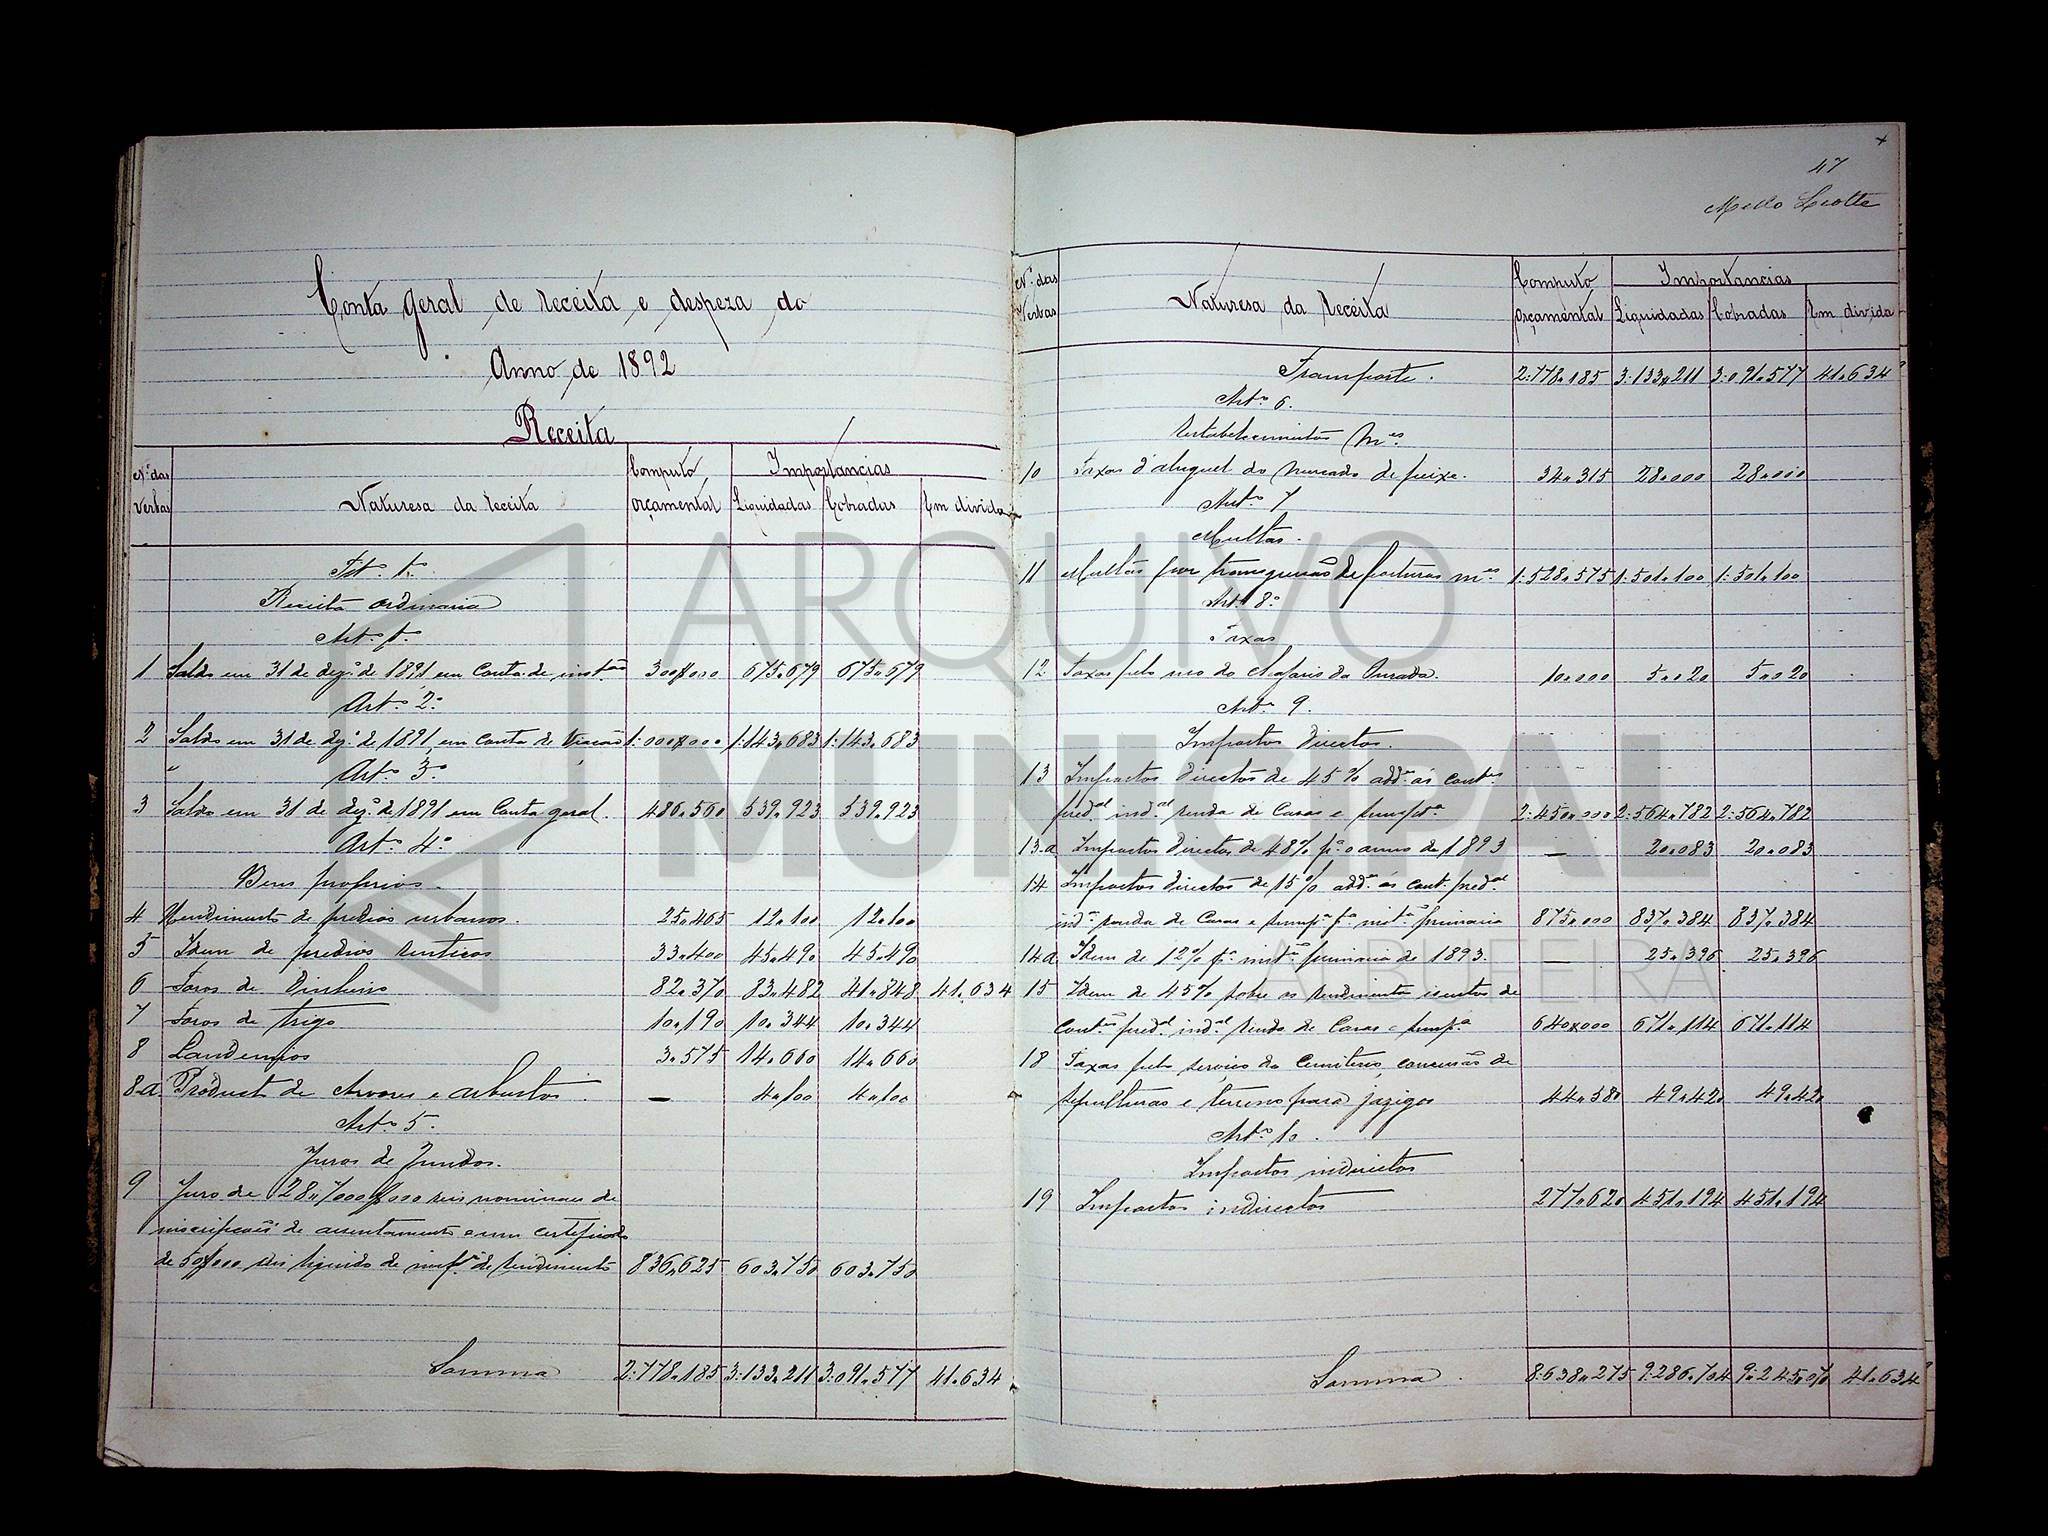 Conta geral de receita e despeza do
Anno de 1892
Receita
N.º das Verbas Naturesa da receita Computo orçamental Importancias Liquidadas Cobradas Em divida
Tit. 1.º
Receita ordinaria
Art.º 1.º
1 Saldo em 31 de dez.º de 1891 em Conta de inst.ão 300$000 675,679 675,679
Art.º 2.º
2 Saldo em 31 de dez.º de 1891, em Conta de Viação 1:000$000 1:143,683 1:143,683
" Art.º 3.º
3 Saldo em 31 de dez.º de 1891 em Conta geral. 486,560 539,923 539,923
Art.º 4.º
Bens proprios.
4 Rendimento de predios urbanos. 25,465 12,100 12,100
5 Idem de predios rusticos 33,400 45,490 45,490
6 Foros de Dinheiro 82,370 83,482 41,848 41,634
7 Foros de trigo 10,190 10,344 10,344
8 Laudemios 3,575 14,660 14,660
8-a Producto de Arvores e arbustos. — 4,100 4,100
Art.º 5.
Juros de fundos.
9 Juro de 28,700$000 reis nominaes de
inscripções de assentamento e um certificado
de 50$000 reis liquido de imp.º de rendimento 836,625 603,750 603,750
Somma 2:778,185 3:133,211 3:091,577 41,634
47
Mello Leotte
N.º das Verbas Naturesa da receita Computo orçamental Importancias Liquidadas Cobradas Em divida
Transporte. 2:778,185 3:133,211 3:091,577 41,634
Art.º 6.
Estabelecimentos m.es
10 Taxas d'aluguel do mercado de peixe. 34,315 28,000 28,000
Art.º 7
Multas.
11 Multas por transgressão de posturas m.es 1:528,575 1:501,100 1:501,100
Art.º 8.º
Taxas
12 Taxas pelo uso do Chafariz da Ourada. 10,000 5,020 5,020
Art.º 9.
Impostos directos.
13 Impostos directos de 45% add.es ás cont.es
pred.al ind.al renda de Casas e sumpt.ª 2:450,000 2:564,782 2:564,782
13-a Impostos directos de 48% p.ª o anno de 1893 — 20,083 20,083
14 Impostos directos de 15% add.es ás cont. pred.al
ind.al renda de Casas e sump.ª p.ª inst.ão primaria 875,000 837,384 837,384
14a Idem de 12% p.ª inst.ão primaria de 1893. — 25,396 25,396
15 Idem de 45% sobre os rendimentos isentos de
cont.es pred.al ind.al renda de Casas e sump.ª 640,000 671,114 671,114
18 Taxas pelo serviço do Cemiterio, concessão de
sepulturas e terreno para jazigos 44,380 49,420 49,420
Art.º 10.
Impostos indirectos
19 Impostos indirectos 277,620 451,194 451,194
Somma. 8:638,275 9:286,704 9:245,070 41,634
ARQUIVO
MUNICIPAL
ALBUFEIRA